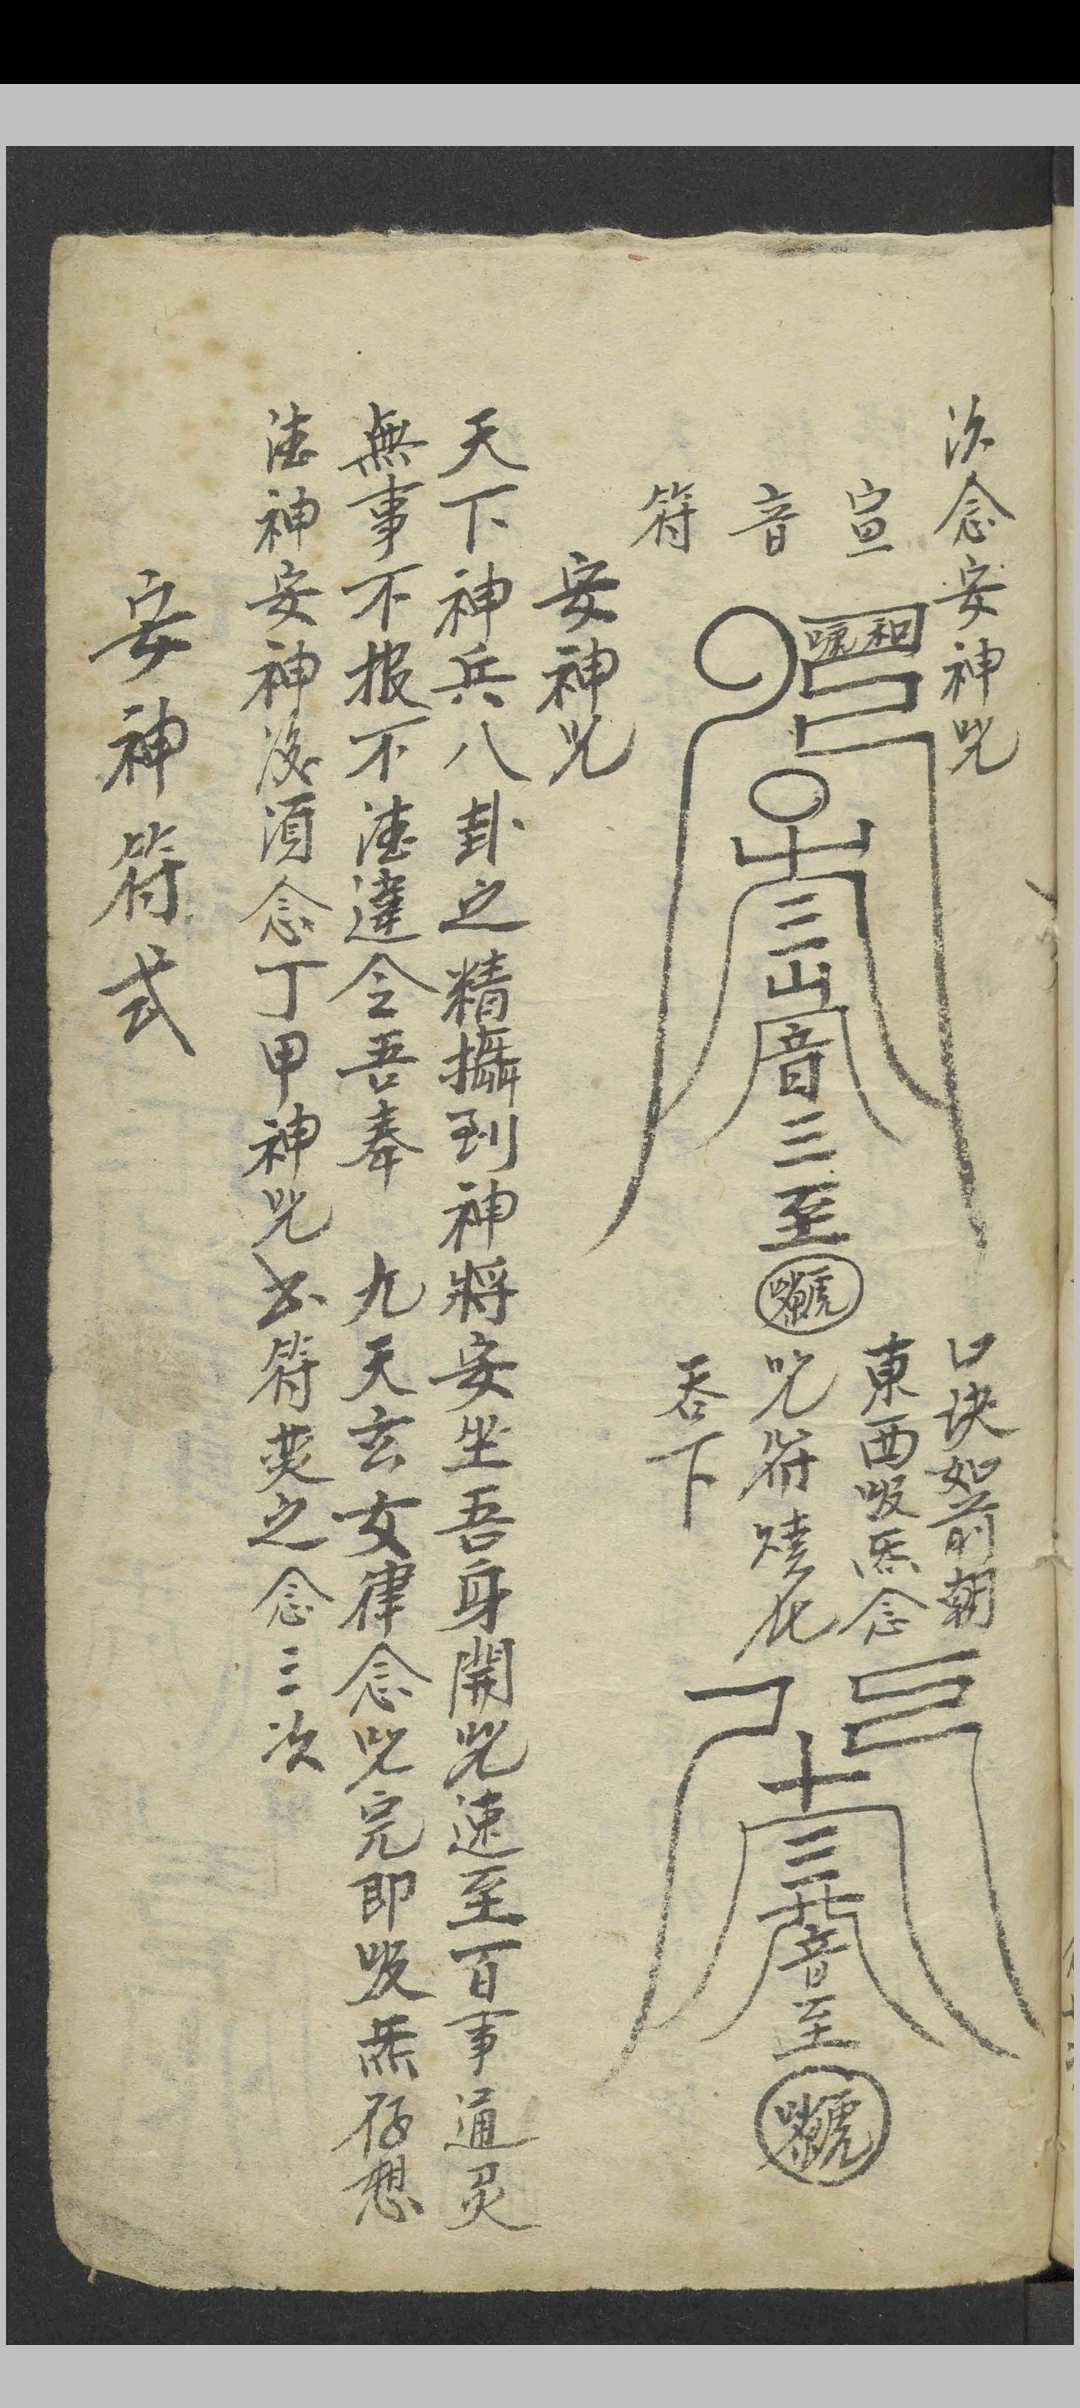 次念安神咒
宣
音
符
口诀如前朝
東西吸炁念
咒符燒化
吞下
十三山音三至
十三音至
安神咒
天下神兵八卦之精攝到神將安坐吾身開咒速至百事通灵
無事不报不法違令吾奉 九天玄女律念咒完即吸炁存想
法神安神後須念丁甲神咒 符焚之念三次
安神符式